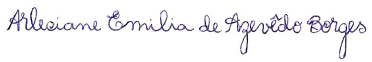 Arleciane Emilia de Azevêdo Borges